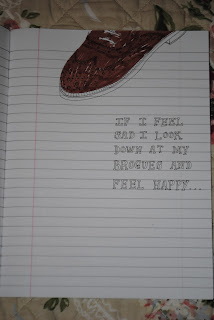 IF I FEEL
SAD I LOOK
DOWN AT MY
BROGUES AND
FEEL HAPPY...